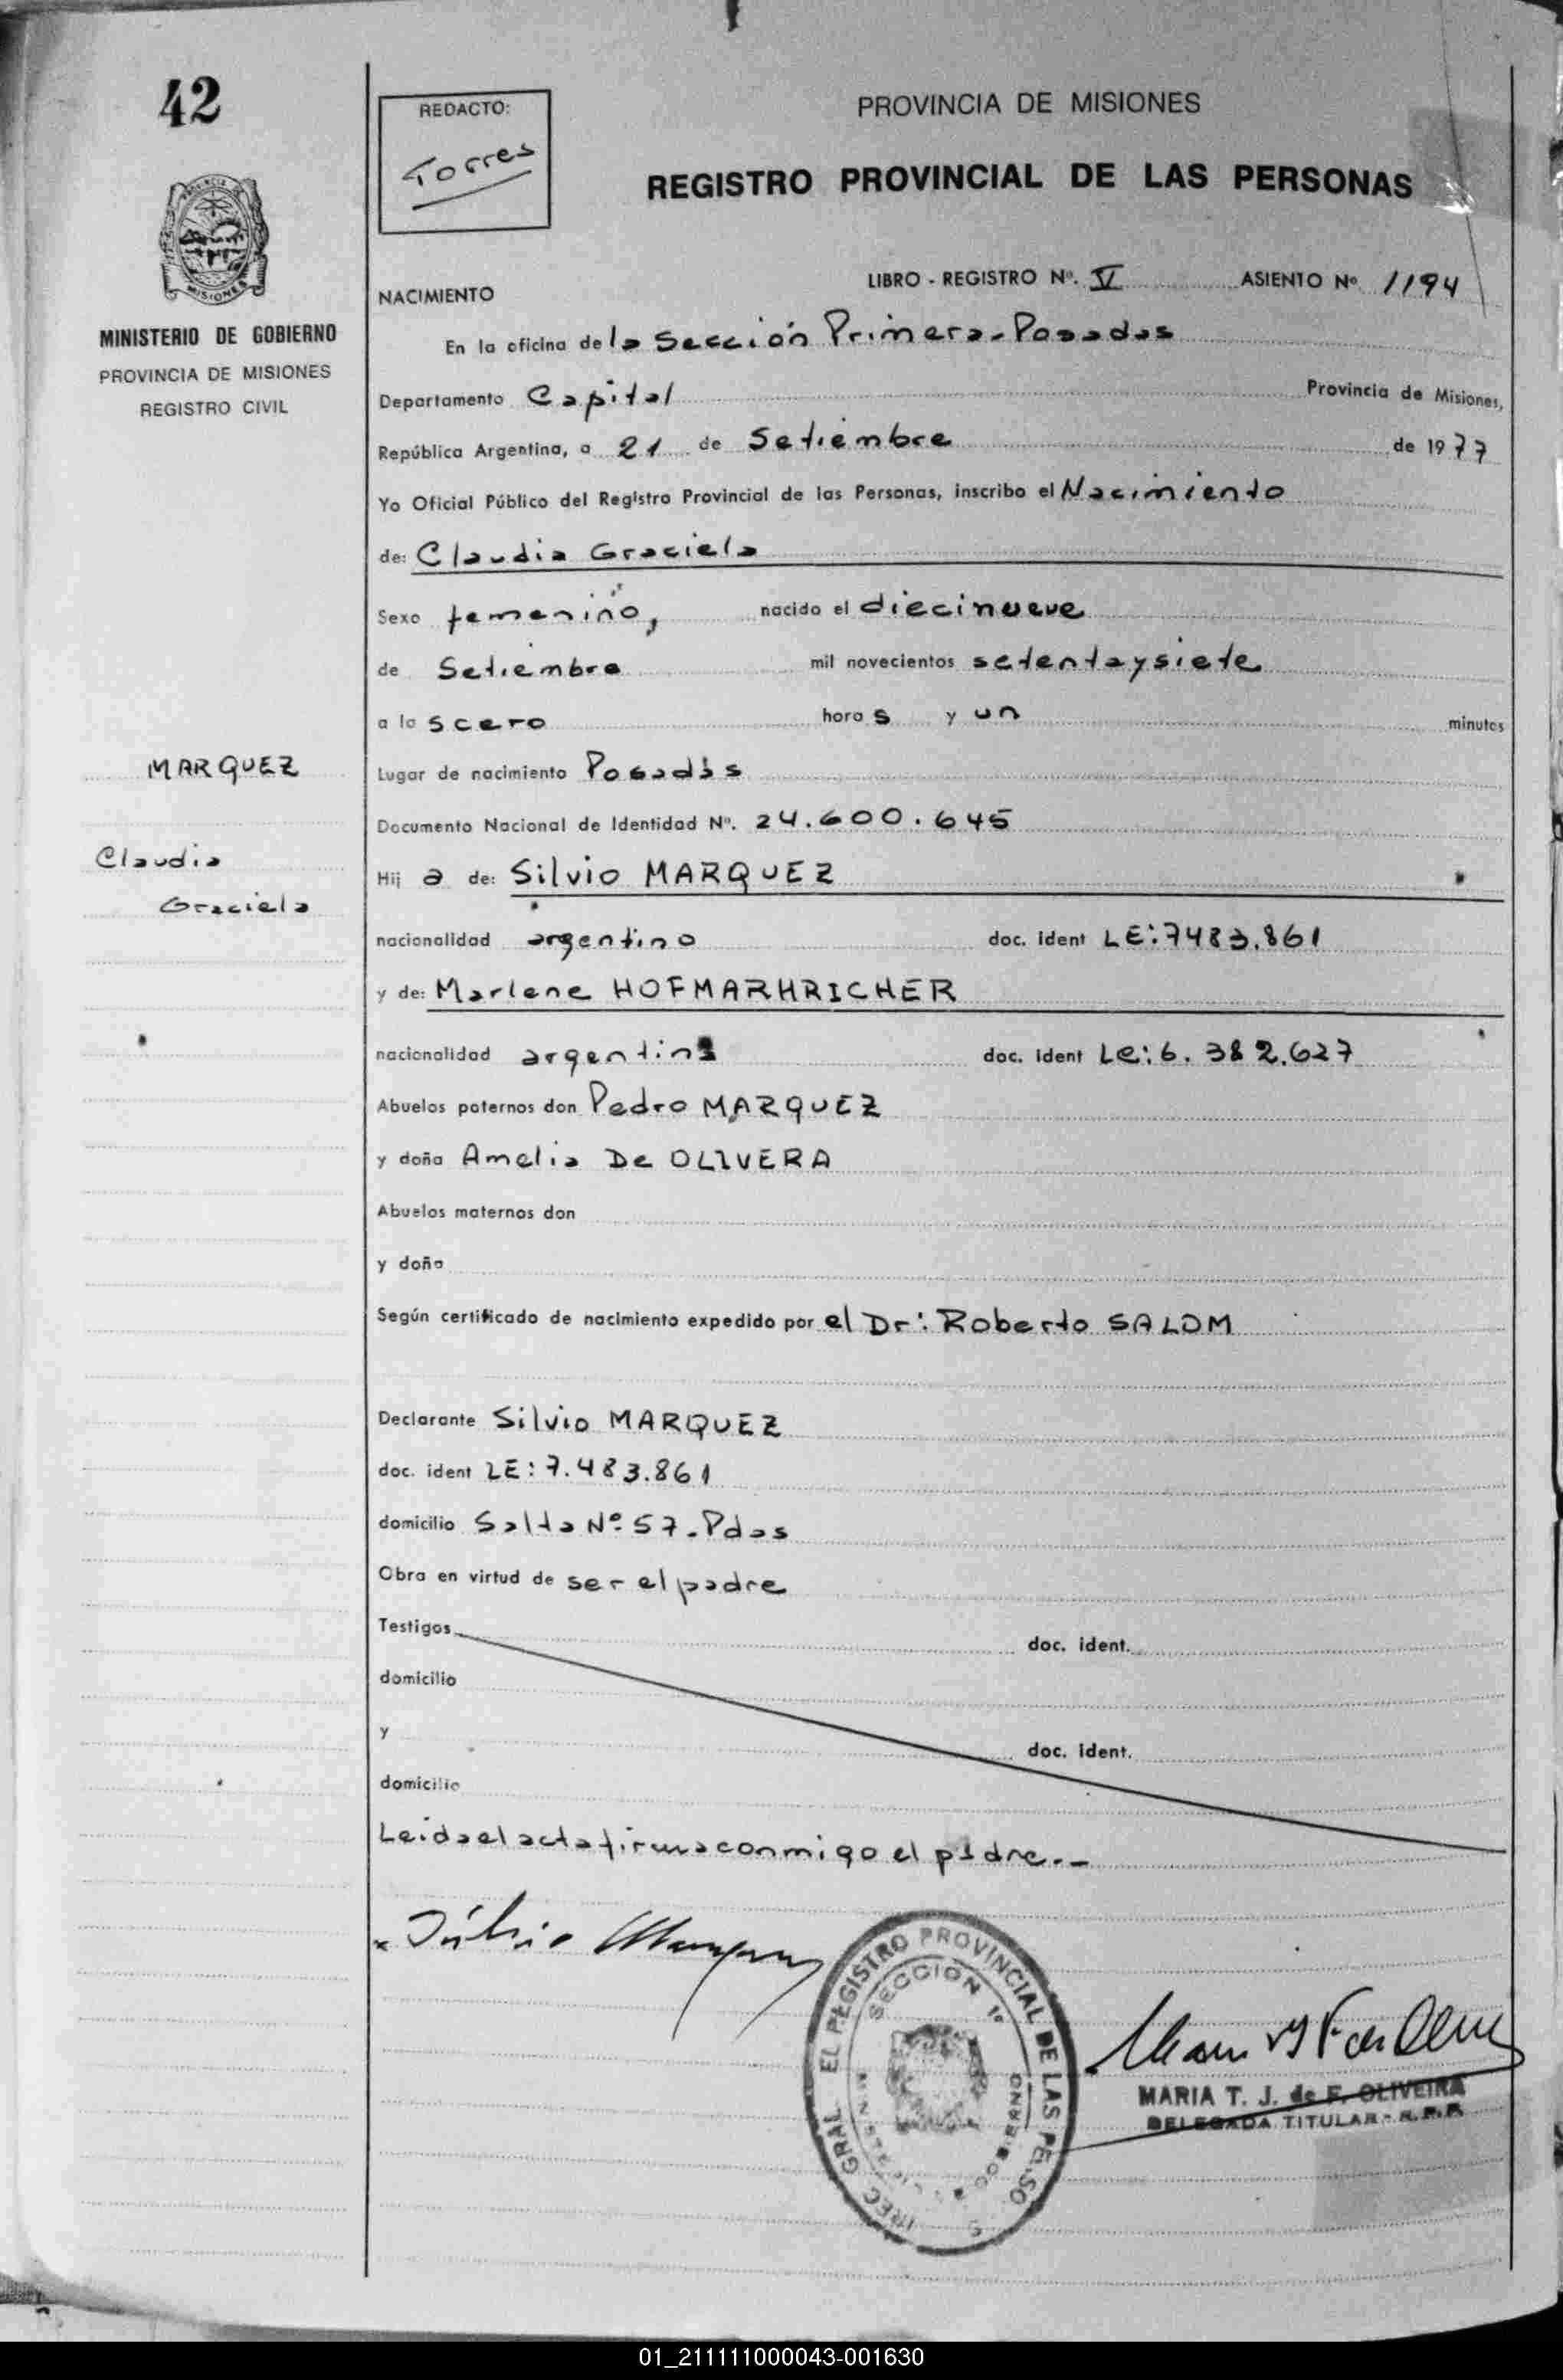 42
REDACTO:
Torres
PROVINCIA DE MISIONES
REGISTRO PROVINCIAL DE LAS PERSONAS
MISIONES
MINISTERIO DE GOBIERNO
PROVINCIA DE MISIONES
REGISTRO CIVIL
NACIMIENTO
LIBRO - REGISTRO Nº. V ASIENTO Nº 1194
En la oficina de la Sección Primera-Posadas
Departamento Capital Provincia de Misiones,
República Argentina, a 21 de Setiembre de 1977
Yo Oficial Público del Registro Provincial de las Personas, inscribo el Nacimiento
de: Claudia Graciela
Sexo femenino, nacido el diecinueve
de Setiembre mil novecientos setentaysiete
a las cero horas y un minutos
MARQUEZ
Lugar de nacimiento Posadas
Documento Nacional de Identidad Nº. 24.600.645
Claudia
Graciela
Hija de: Silvio MARQUEZ
nacionalidad argentino doc. ident LE:7483.861
y de: Marlene HOFMARHRICHER
nacionalidad argentina doc. ident Le:6.382.627
Abuelos paternos don Pedro MARQUEZ
y doña Amelia De OLIVERA
Abuelos maternos don
y doña
Según certificado de nacimiento expedido por el Dr: Roberto SALOM
Declarante Silvio MARQUEZ
doc. ident LE: 7.483.861
domicilio Salta Nº 57-Pdas
Obra en virtud de ser el padre
Testigos doc. ident.
domicilio
y doc. ident.
domicilio
Leida el acta firma conmigo el padre.-
GRAL EL REGISTRO PROVINCIAL DE LAS
SECCION 1º
GOBIERNO
MARIA T. J. de F. OLIVEIRA
DELEGADA TITULAR - R.P.P.
01_211111000043-001630